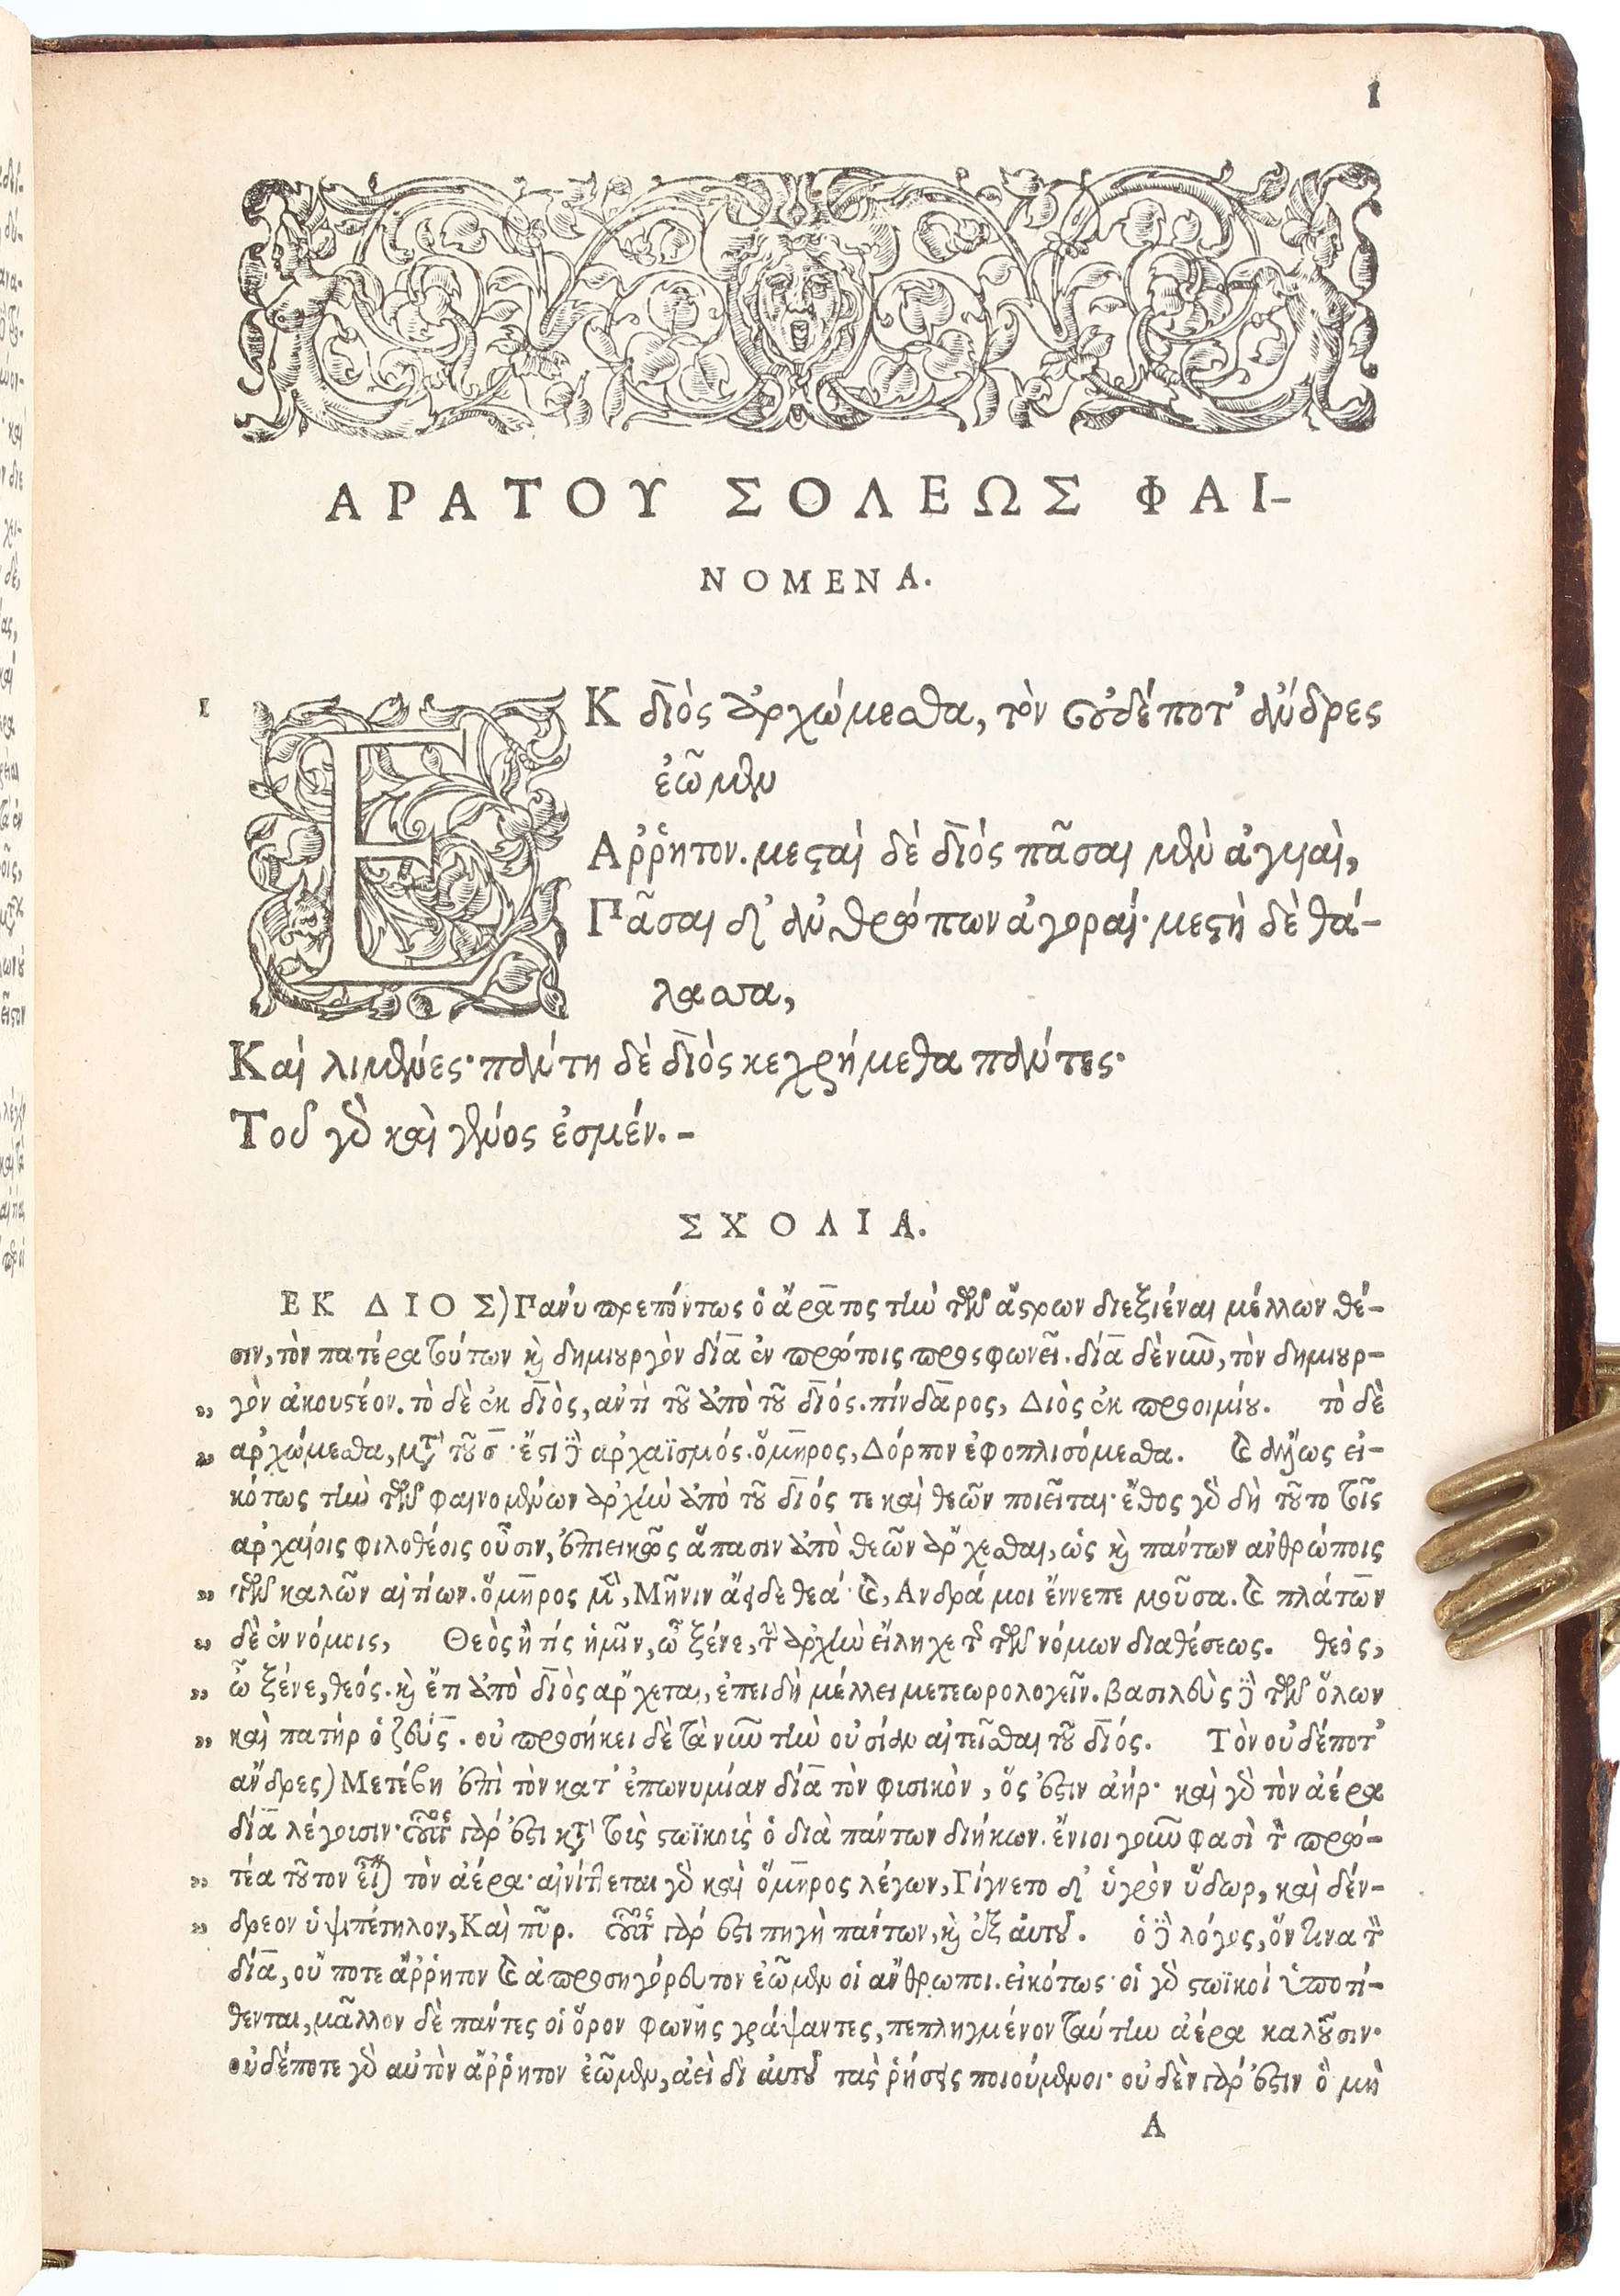 1
ΑΡΑΤΟΥ ΣΟΛΕΩΣ ΦΑΙ-
ΝΟΜΕΝΑ.
1
ΕΚ διὸς ἀρχώμεσθα, τὸν οὐδέποτ' ἄνδρες
ἐῶμεν
Αῤῥητον. μεςαὶ δὲ διός πᾶσαι μὲν ἀγυιαὶ,
Πᾶσαι δ' ἀνθρώπων ἀγοραί· μεςὴ δὲ θά-
λασσα,
Καὶ λιμένες· πάντη δὲ διὸς κεχρήμεθα πάντες·
Τοῦ γὰρ καὶ γένος ἐσμέν. -
ΣΧΟΛΙΑ.
ΕΚ ΔΙΟΣ) Πανύ πρεπόντως ὁ ἄρατος τὴν τῶν ἄςρων διεξιέναι μέλλων θέ-
σιν, τὸν πατέρα τούτων καὶ δημιουργὸν δία ἐν πρώτοις προσφωνεῖ. δία δὲ νῦν, τὸν δημιουρ-
„ γὸν ἀκουςέον. τὸ δὲ ἐκ διὸς, αντὶ τοῦ ἀπὸ τοῦ διός. πίνδαρος, Διὸς ἐκ προοιμίου. τὸ δὲ
„ αρχώμεσθα, μετὰ τοῦ σ· ἔςι δὲ αρχαϊσμός. ὅμηρος, Δόρπον ἐφοπλισόμεσθα. καὶ ἄλλως εἰ-
κότως τὴν τῶν φαινομένων ἀρχὴν ἀπὸ τοῦ διός τε καὶ θεῶν ποιεῖται· ἔθος γὰρ δὴ τοῦτο τοῖς
αρχαίοις φιλοθέοις οὖσιν, ἐπιεικῶς ἅπασιν ἀπὸ θεῶν ἄρχεσθαι, ὡς καὶ πάντων ανθρώποις
„ τῶν καλῶν αἰτίων. ὅμηρος μὲν, Μῆνιν ἄειδε θεά· καὶ, Ανδρά μοι ἔννεπε μοῦσα. καὶ πλάτων
„ δὲ ἐν νόμοις, Θεὸς ἤ τίς ἡμῖν, ὦ ξένε, τὴν ἀρχὴν εἴληχε τῆς τῶν νόμων διαθέσεως. θεὸς,
„ ὦ ξένε, θεός. καὶ ἔτι ἀπὸ διὸς αρχεται, ἐπειδὴ μέλλει μετεωρολογεῖν. βασιλεὺς δὲ τῶν ὅλων
„ καὶ πατὴρ ὁ ζεύς. οὐ προσήκει δὲ τὰ νῦν τὴν οὐσίαν αἰτεῖσθαι τοῦ διός. Τὸν οὐδέποτ'
ἄνδρες) Μετέβη ἐπὶ τὸν κατ' ἐπωνυμίαν δία τὸν φισικὸν, ὅς ἐςιν ἀήρ· καὶ γὰρ τὸν ἀέρα
δία λέγουσιν· οὗτος γὰρ ἐςι κατὰ τοὺς ςωϊκοὺς ὁ διὰ πάντων διήκων. ἔνιοι γοῦν φασὶ τὸν πρω-
„ τέα τοῦτον εἶναι τὸν ἀέρα· αἰνίττεται γὰρ καὶ ὅμηρος λέγων, Γίγνετο δ' ὑγρὸν ὕδωρ, καὶ δέν-
„ δρεον ὑψιπέτηλον, Καὶ πῦρ. οὗτος γάρ ἐςι πηγὴ πάντων, καὶ ἐξ αὐτοῦ. ὁ δὲ λόγος, ὅντινα τὸν
δία, οὔ ποτε ἄῤῥητον καὶ ἀπροσηγόρευτον ἐῶμεν οἱ ἄνθρωποι. εἰκότως· οἱ γὰρ ςωϊκοί ὑποτί-
θενται, μᾶλλον δὲ πάντες οἱ ὅρον φωνῆς γράψαντες, πεπληγμένον ταύτην ἀέρα καλοῦσιν·
οὐδέποτε γὰρ αὐτὸν ἄῤῥητον ἐῶμεν, ἀεὶ δι αὐτοῦ τὰς ῥήσεις ποιούμενοι· οὐδὲν γάρ ἐςιν ὃ μὴ
Α